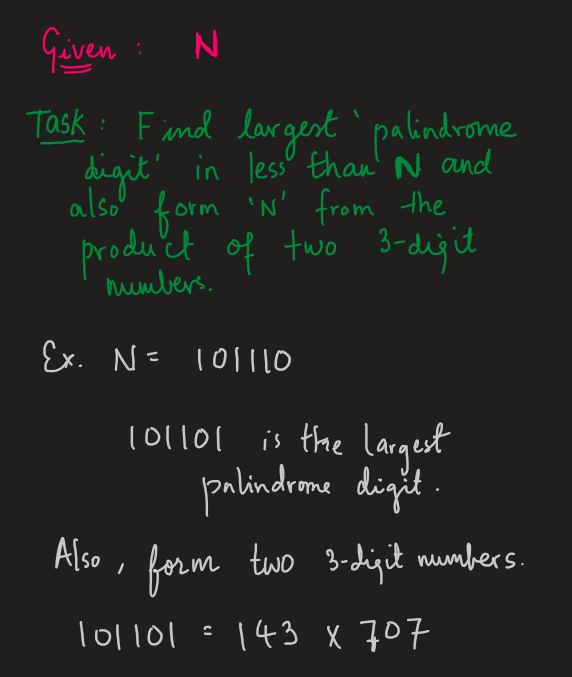 Given : N
Task : Find largest 'palindrome
digit' in less than N and
also form 'N' from the
product of two 3-digit
numbers.
Ex. N = 101110
101101 is the largest
palindrome digit.
Also, form two 3-digit numbers.
101101 = 143 x 707